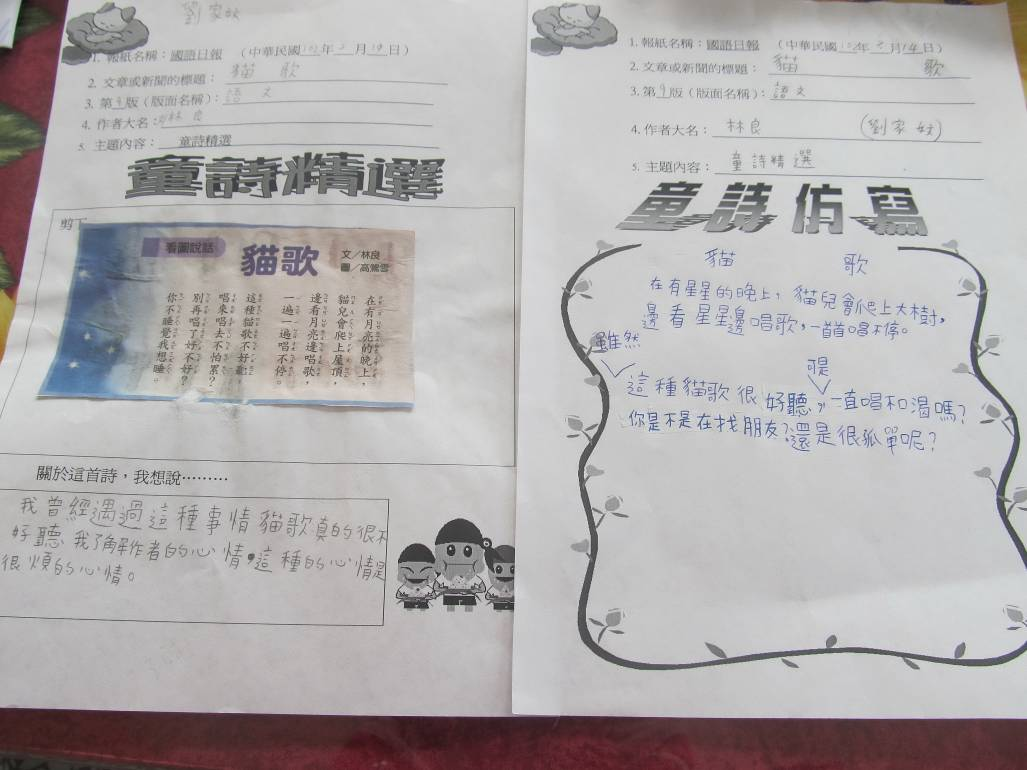 劉家妏
1. 報紙名稱：國語日報 （中華民國102年3月19日）
2. 文章或新聞的標題： 貓 歌
3. 第9版（版面名稱）： 語 文
4. 作者大名： 林 良
5. 主題內容： 童詩精選
童詩精選
剪下
看圖說話
貓歌
文／林良
圖／高鶯雪
在有月亮的晚上，
貓兒會爬上屋頂，
邊看月亮邊唱歌，
一遍一遍唱不停。
這種貓歌不好聽，
唱來唱去不怕累？
別再唱了好不好？
你不睡覺我想睡。
關於這首詩，我想說………
我曾經遇過這種事情貓歌真的很不
好聽 我了解作者的心情，這種的心情是
很煩的心情。
1. 報紙名稱：國語日報 （中華民國102年3月14日）
2. 文章或新聞的標題： 貓 歌
3. 第9版（版面名稱）： 語 文
4. 作者大名： 林良 （劉家妏）
5. 主題內容： 童詩精選
童詩仿寫
貓 歌
在有星星的晚上，貓兒會爬上大樹，
邊看星星邊唱歌，一首首唱不停。
雖然 可是
這種貓歌很好聽，一直唱和渴嗎？
你是不是在找朋友？還是很孤單呢？